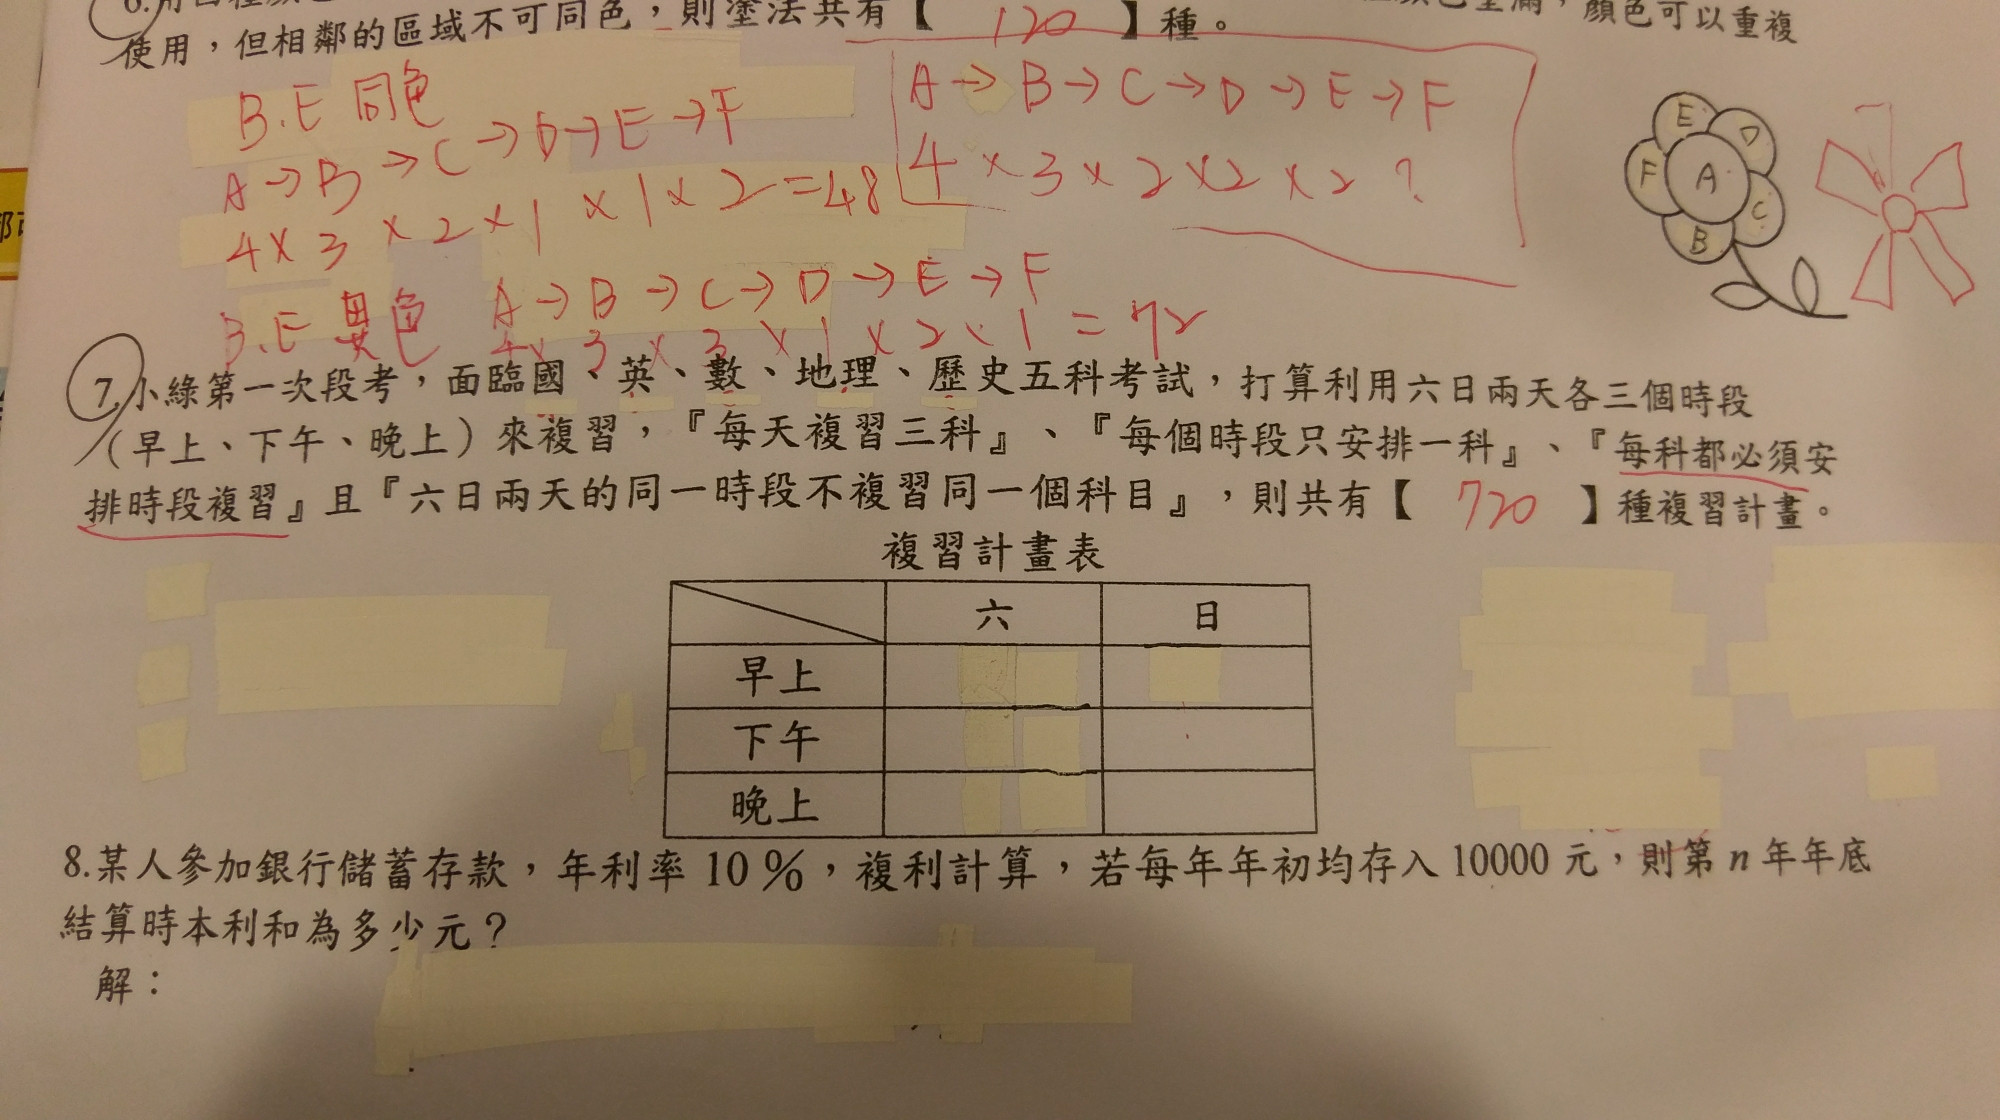 6.用四種顏色 塗滿，顏色可以重複
使用，但相鄰的區域不可同色，則塗法共有【 120 】種。
B.E 同色
A→B→C→D→E→F
4×3×2×1×1×2=48
A→B→C→D→E→F
4×3×2×2×2?
E
D
F
A
C
B
B.E 異色 A→B→C→D→E→F
4×3×3×1×2×1=72
7.小綠第一次段考，面臨國、英、數、地理、歷史五科考試，打算利用六日兩天各三個時段
（早上、下午、晚上）來複習，『每天複習三科』、『每個時段只安排一科』、『每科都必須安
排時段複習』且『六日兩天的同一時段不複習同一個科目』，則共有【 720 】種複習計畫。
複習計畫表
六 日
早上
下午
晚上
8.某人參加銀行儲蓄存款，年利率10％，複利計算，若每年年初均存入10000元，則第n年年底
結算時本利和為多少元？
解：